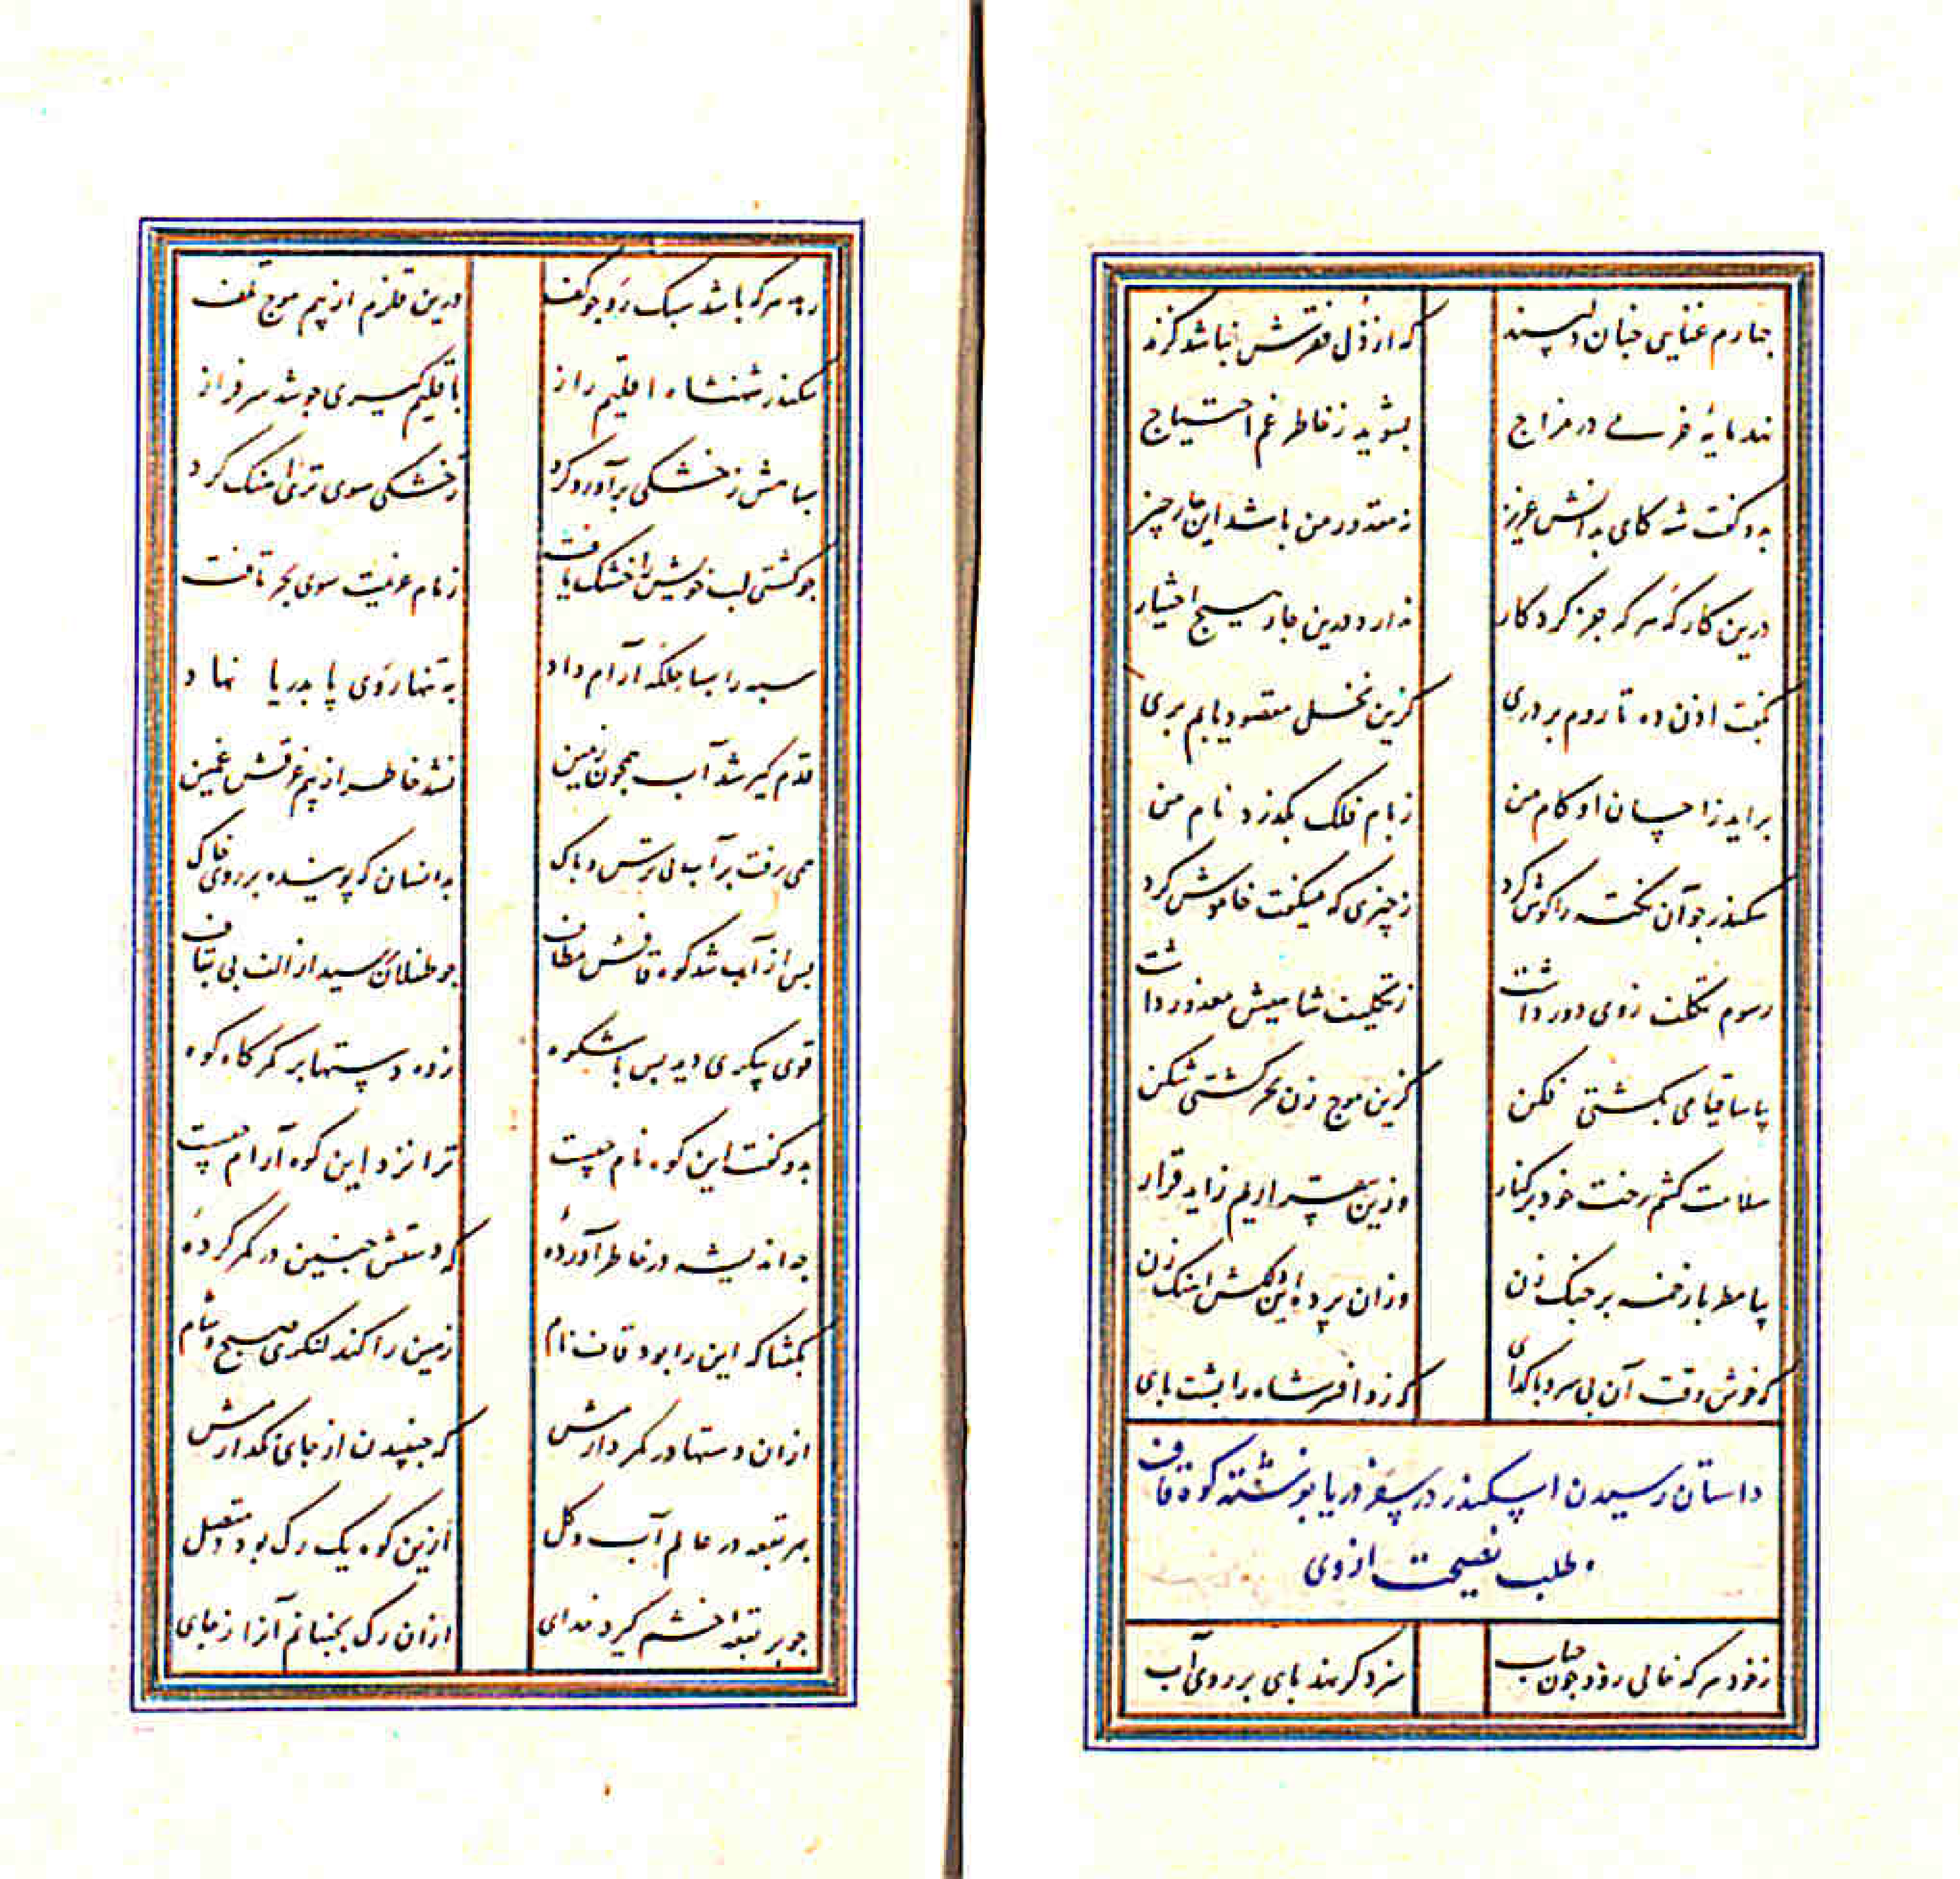 جهارم غنایی جنان دلپسند که از ذل فقرش نباشد کزند
نهد مایهٔ خرمی در مزاج بشوید ز خاطر غم احتیاج
بدو کفت شه کای بدانش عزیز نه مقدور من باشد این جار جیز
درین کارکه هر که جز کردکار ندارد درین جار هیج اختیار
بکفت اذن ده تا روم بر دری کزین نخل مقصود یابم بری
براید ز احسان او کام من ز بام فلک بکذرد نام من
سکندر جو آن نکته را کوش کرد ز جیزی که میکفت خاموش کرد
رسوم تکلف ز وی دور داشت ز تکلیف شاهیش معذور داشت
بیا ساقیا می بکشتی فکن کزین موج زن بحر کشتی شکن
سلامت کشم رخت خود بر کنار وزین بیقراریم زاید قرار
بیا مطربا زخمه بر جنک زن وزان برده این دلکش اهنک زن
که خوش وقت آن بی سر و با کدای که زد افسر شاه را بشت بای
داستان رسیدن اسکندر در سفر دریا بفرشته کوه قاف
و طلب نصیحت از وی
ز خود هر که خالی رود جون حباب سزد کر نهد بای بر روی آب
رهد هر که باشد سبک رو جو کف درین قلزم از بیم موج تلف
سکندر شهنشاه اقلیم راز باقلیم کیری جو شد سرفراز
سباهش ز خشکی برآورد کرد ز خشکی سوی تری اهنک کرد
جو کشتی لب خویش را خشک یافت زمام عزیمت سوی بحر تافت
سبه را بساحلکه آرام داد به تنها روی پا بدریا نهاد
قدم کیر شد آب همجون زمین نشد خاطر از بیم غرقش غمین
همی رفت بر آب بی ترس و باک بدانسان که پوینده بر روی خاک
بس از آب شد کوه قافش مطاف جو طفلان رسید از الف بی تباف
قوی بیکری دید بس باشکوه زده دستها بر کمرکاه کوه
بدو کفت این کوه نام جیست ترا نزد این کوه آرام جیست
جه اندیشه در خاطر آوردهٔ که دستش جنین در کمر کردهٔ
بکفتا که این را بود قاف نام زمین را کند لنکری صبح و شام
ازان دستها در کمر دارمش که جنبیدن از جای نکذارمش
بهر بقعه در عالم آب و کل ازین کوه یک رک بود متصل
جو بر بقعهٔ خشم کیرد خدای ازان رک بجنبانم آنرا ز جای